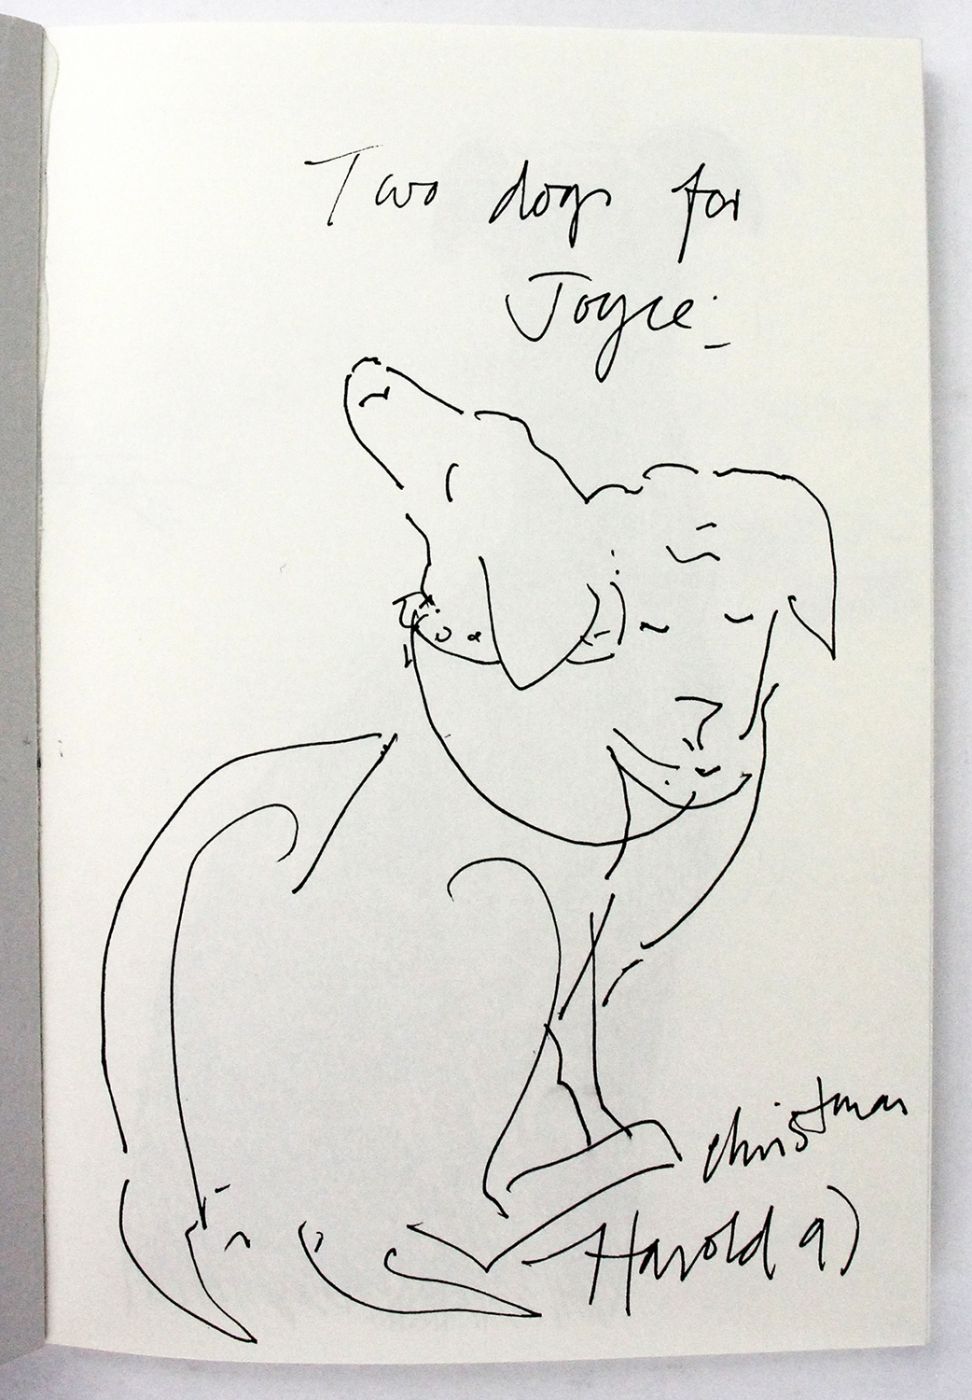 Two dogs for
Joyce
christmas
Harold 91